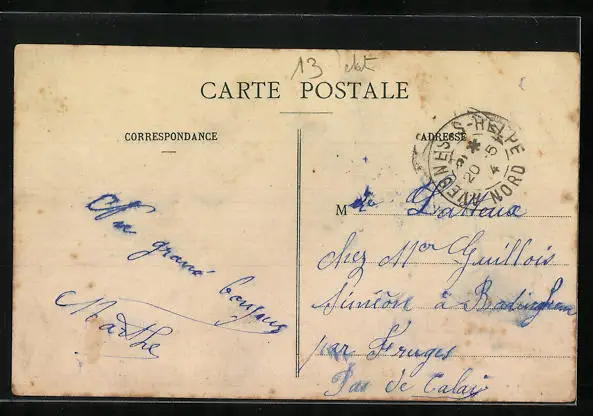 13
CARTE POSTALE
CORRESPONDANCE
ADRESSE
AVESNES-S-HELPE
20
4 5
NORD
Un grand bonjour
Marthe
Mde Latteux
chez Mer Guillois
à Radinghem
par Fruges
Pas de Calais